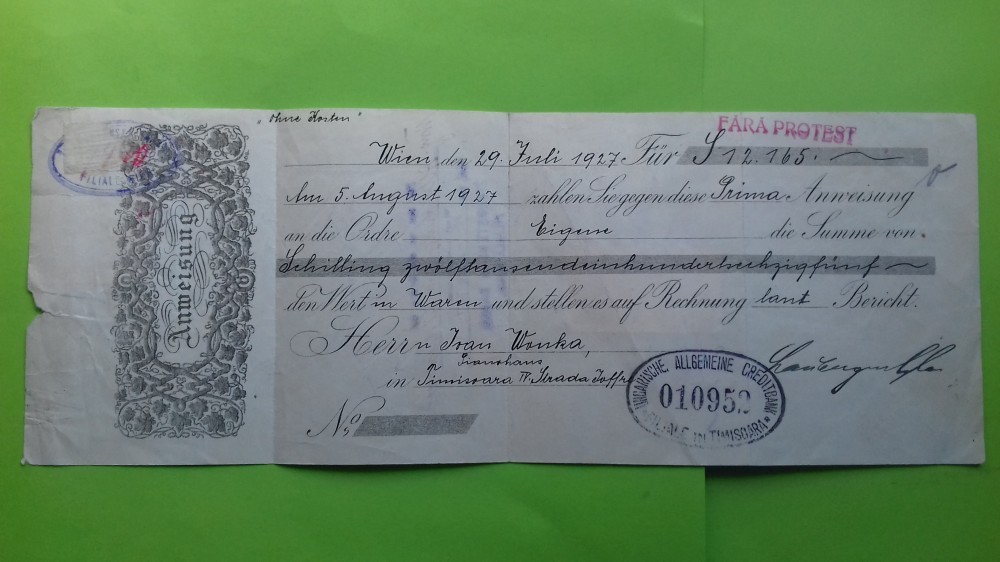 "Ohne Kosten"
FĂRĂ PROTEST
Wien den 29. Juli 1927 Für S 12.165.
Am 5. August 1927 zahlen Sie gegen diese Prima Anweisung
an die Ordre Eigene die Summe von
Schilling zwölftausendeinhundertsechzigfünf
den Wert in Waren und stellen es auf Rechnung laut Bericht.
Herrn Ivan Wonka,
in Timisoara IV. Strada Joffre
No
Anweisung
FILIALE
UNGARISCHE ALLGEMEINE CREDITBANK
010952
FILIALE IN TIMISOARA